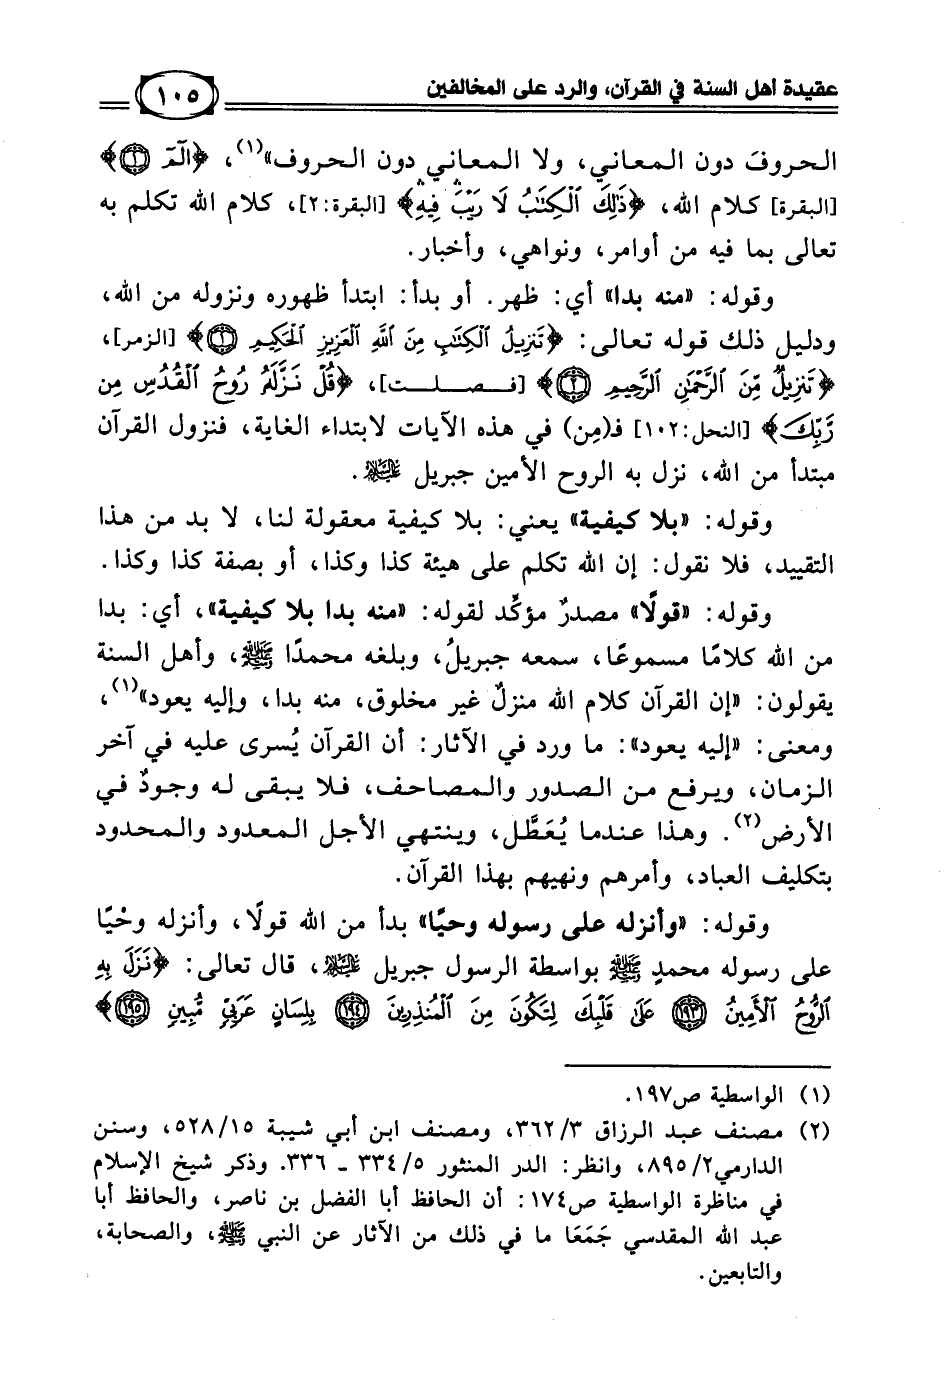 عقيدة أهل السنة في القرآن، والرد على المخالفين
١٠٥
الحروفَ دون المعاني، ولا المعاني دون الحروف»(١)، ﴿الٓمٓ ۝١﴾
[البقرة] كلام الله، ﴿ذَٰلِكَ ٱلْكِتَٰبُ لَا رَيْبَ ۛ فِيهِ ۛ﴾ [البقرة:٢]، كلام الله تكلم به
تعالى بما فيه من أوامر، ونواهي، وأخبار.
وقوله: «منه بدا» أي: ظهر. أو بدأ: ابتدأ ظهوره ونزوله من الله،
ودليل ذلك قوله تعالى: ﴿تَنزِيلُ ٱلْكِتَٰبِ مِنَ ٱللَّهِ ٱلْعَزِيزِ ٱلْحَكِيمِ ۝١﴾ [الزمر]،
﴿تَنزِيلٌ مِّنَ ٱلرَّحْمَٰنِ ٱلرَّحِيمِ ۝٢﴾ [فصلت]، ﴿قُلْ نَزَّلَهُۥ رُوحُ ٱلْقُدُسِ مِن
رَّبِّكَ﴾ [النحل:١٠٢] فـ(مِن) في هذه الآيات لابتداء الغاية، فنزول القرآن
مبتدأ من الله، نزل به الروح الأمين جبريل عليه السلام.
وقوله: «بلا كيفية» يعني: بلا كيفية معقولة لنا، لا بد من هذا
التقييد، فلا نقول: إن الله تكلم على هيئة كذا وكذا، أو بصفة كذا وكذا.
وقوله: «قولًا» مصدرٌ مؤكِّد لقوله: «منه بدا بلا كيفية»، أي: بدا
من الله كلامًا مسموعًا، سمعه جبريلُ، وبلغه محمدًا ﷺ، وأهل السنة
يقولون: «إن القرآن كلام الله منزلٌ غير مخلوق، منه بدا، وإليه يعود»(١)،
ومعنى: «إليه يعود»: ما ورد في الآثار: أن القرآن يُسرى عليه في آخر
الزمان، ويرفع من الصدور والمصاحف، فلا يبقى له وجودٌ في
الأرض(٢). وهذا عندما يُعَطَّل، وينتهي الأجل المعدود والمحدود
بتكليف العباد، وأمرهم ونهيهم بهذا القرآن.
وقوله: «وأنزله على رسوله وحيًا» بدأ من الله قولًا، وأنزله وحْيًا
على رسوله محمدٍ ﷺ بواسطة الرسول جبريل عليه السلام، قال تعالى: ﴿نَزَلَ بِهِ
ٱلرُّوحُ ٱلْأَمِينُ ۝١٩٣ عَلَىٰ قَلْبِكَ لِتَكُونَ مِنَ ٱلْمُنذِرِينَ ۝١٩٤ بِلِسَانٍ عَرَبِىٍّ مُّبِينٍ ۝١٩٥﴾
(١) الواسطية ص١٩٧.
(٢) مصنف عبد الرزاق ٣٦٢/٣، ومصنف ابن أبي شيبة ٥٢٨/١٥، وسنن
الدارمي٨٩٥/٢، وانظر: الدر المنثور ٣٣٤/٥ ـ ٣٣٦. وذكر شيخ الإسلام
في مناظرة الواسطية ص١٧٤: أن الحافظ أبا الفضل بن ناصر، والحافظ أبا
عبد الله المقدسي جَمَعَا ما في ذلك من الآثار عن النبي ﷺ، والصحابة،
والتابعين.